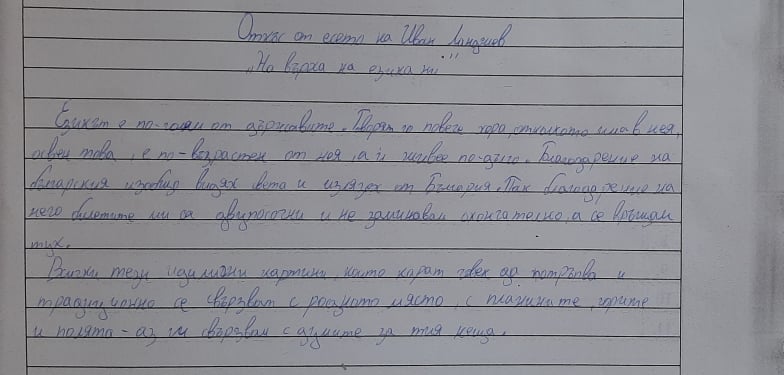 Откъс от есето на Иван Ланджев
"На върха на езика ни"
Езикът е по-голям от държавите. Говорят го повече хора, отколкото има в нея,
освен това, е по-възрастен от нея, а и живее по-дълго. Благодарение на
българския изобщо видях света и излязох от България. Пак благодарение на
него билетите ми са двупосочни и не заминавам окончателно, а се връщам
тук.
Всички тези идилични картини, които карат човек да потръпва и
традиционно се свързват с родното място, с планините, горите
и полята - аз ги свързвам с думите за тия неща.